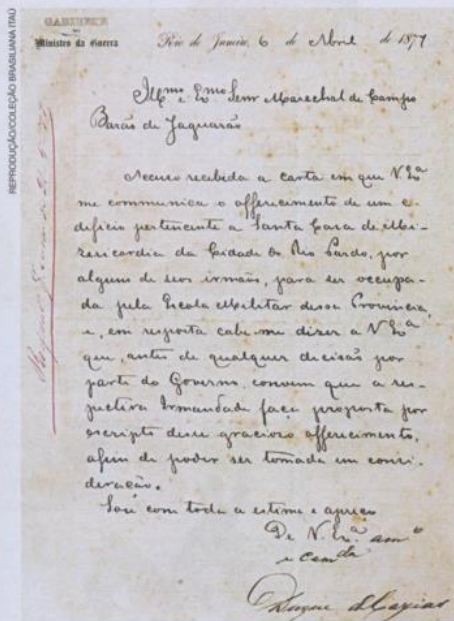 REPRODUÇÃO/COLEÇÃO BRASILIANA ITAÚ
GABINETE
DO
Ministro da Guerra
Rio de Janeiro, 6 de Abril de 1877
Illmo. e Exmo. Senr. Marechal de Campo
Barão de Jaguarão
Accuso recebida a carta em que V. Exa
me communica o offerecimento de um e-
dificio pertencente a Santa Casa de Mi-
zericordia da Cidade do Rio Pardo, por
alguns de seos irmãos, para ser occupa-
da pela Escola Militar dessa Provincia,
e, em resposta cabe-me dizer a V. Exa
que, antes de qualquer decisão por
parte do Governo, convem que a res-
pectiva Irmandade faça proposta por
escripto desse gracioso offerecimento,
afim de poder ser tomada em consi-
deração.
Sou com toda a estima e apreço
De V. Exa. amo
e camda
Duque de Caxias